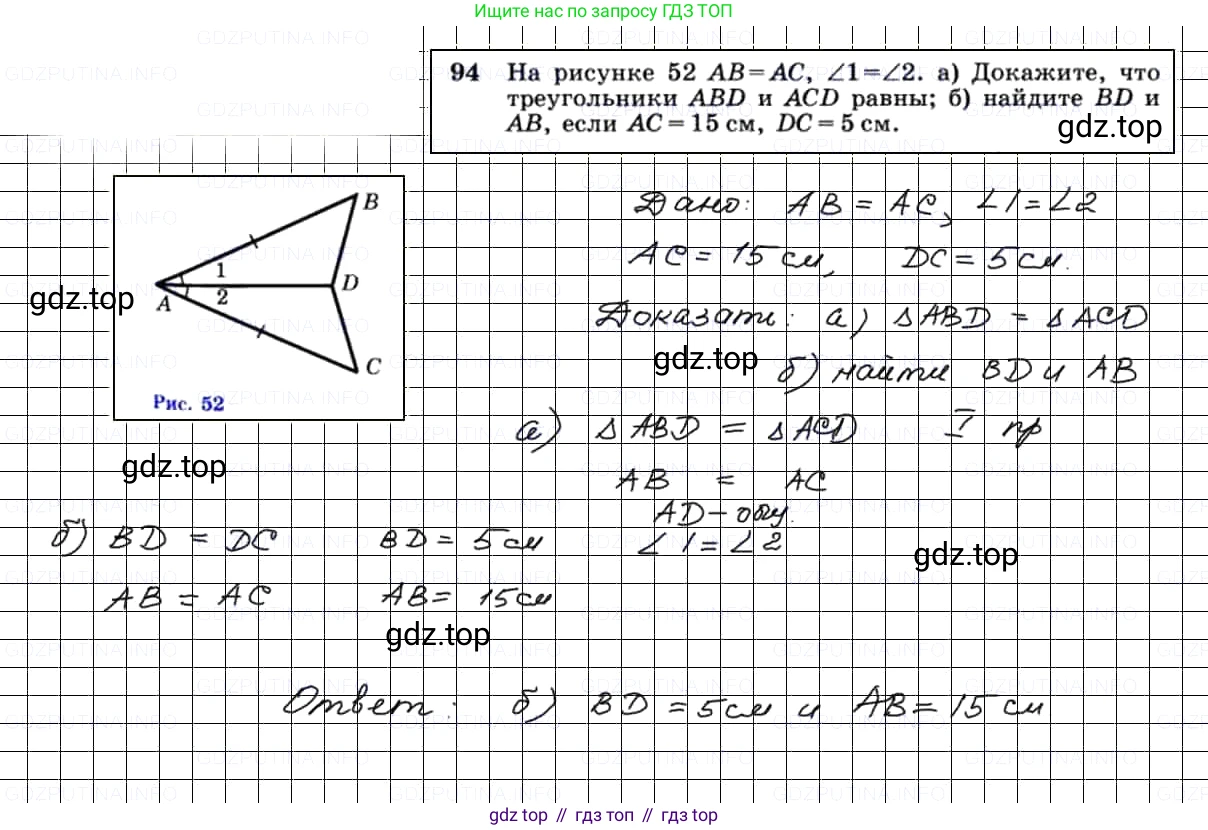 Ищите нас по запросу ГДЗ ТОП
94 На рисунке 52 AB = AC, ∠1 = ∠2. а) Докажите, что
треугольники ABD и ACD равны; б) найдите BD и
AB, если AC = 15 см, DC = 5 см.
gdz.top
Дано: AB = AC, ∠1 = ∠2
AC = 15 см, DC = 5 см.
B
1
2
A
D
C
Рис. 52
gdz.top
Доказать: а) △ABD = △ACD
gdz.top
б) найти BD и AB
а) △ABD = △ACD I пр
gdz.top
AB = AC
AD - общ.
∠1 = ∠2
б) BD = DC BD = 5 см
gdz.top
AB = AC AB = 15 см
gdz.top
Ответ: б) BD = 5 см и AB = 15 см
gdz top // гдз топ // гдз top
GDZPUTINA.INFO